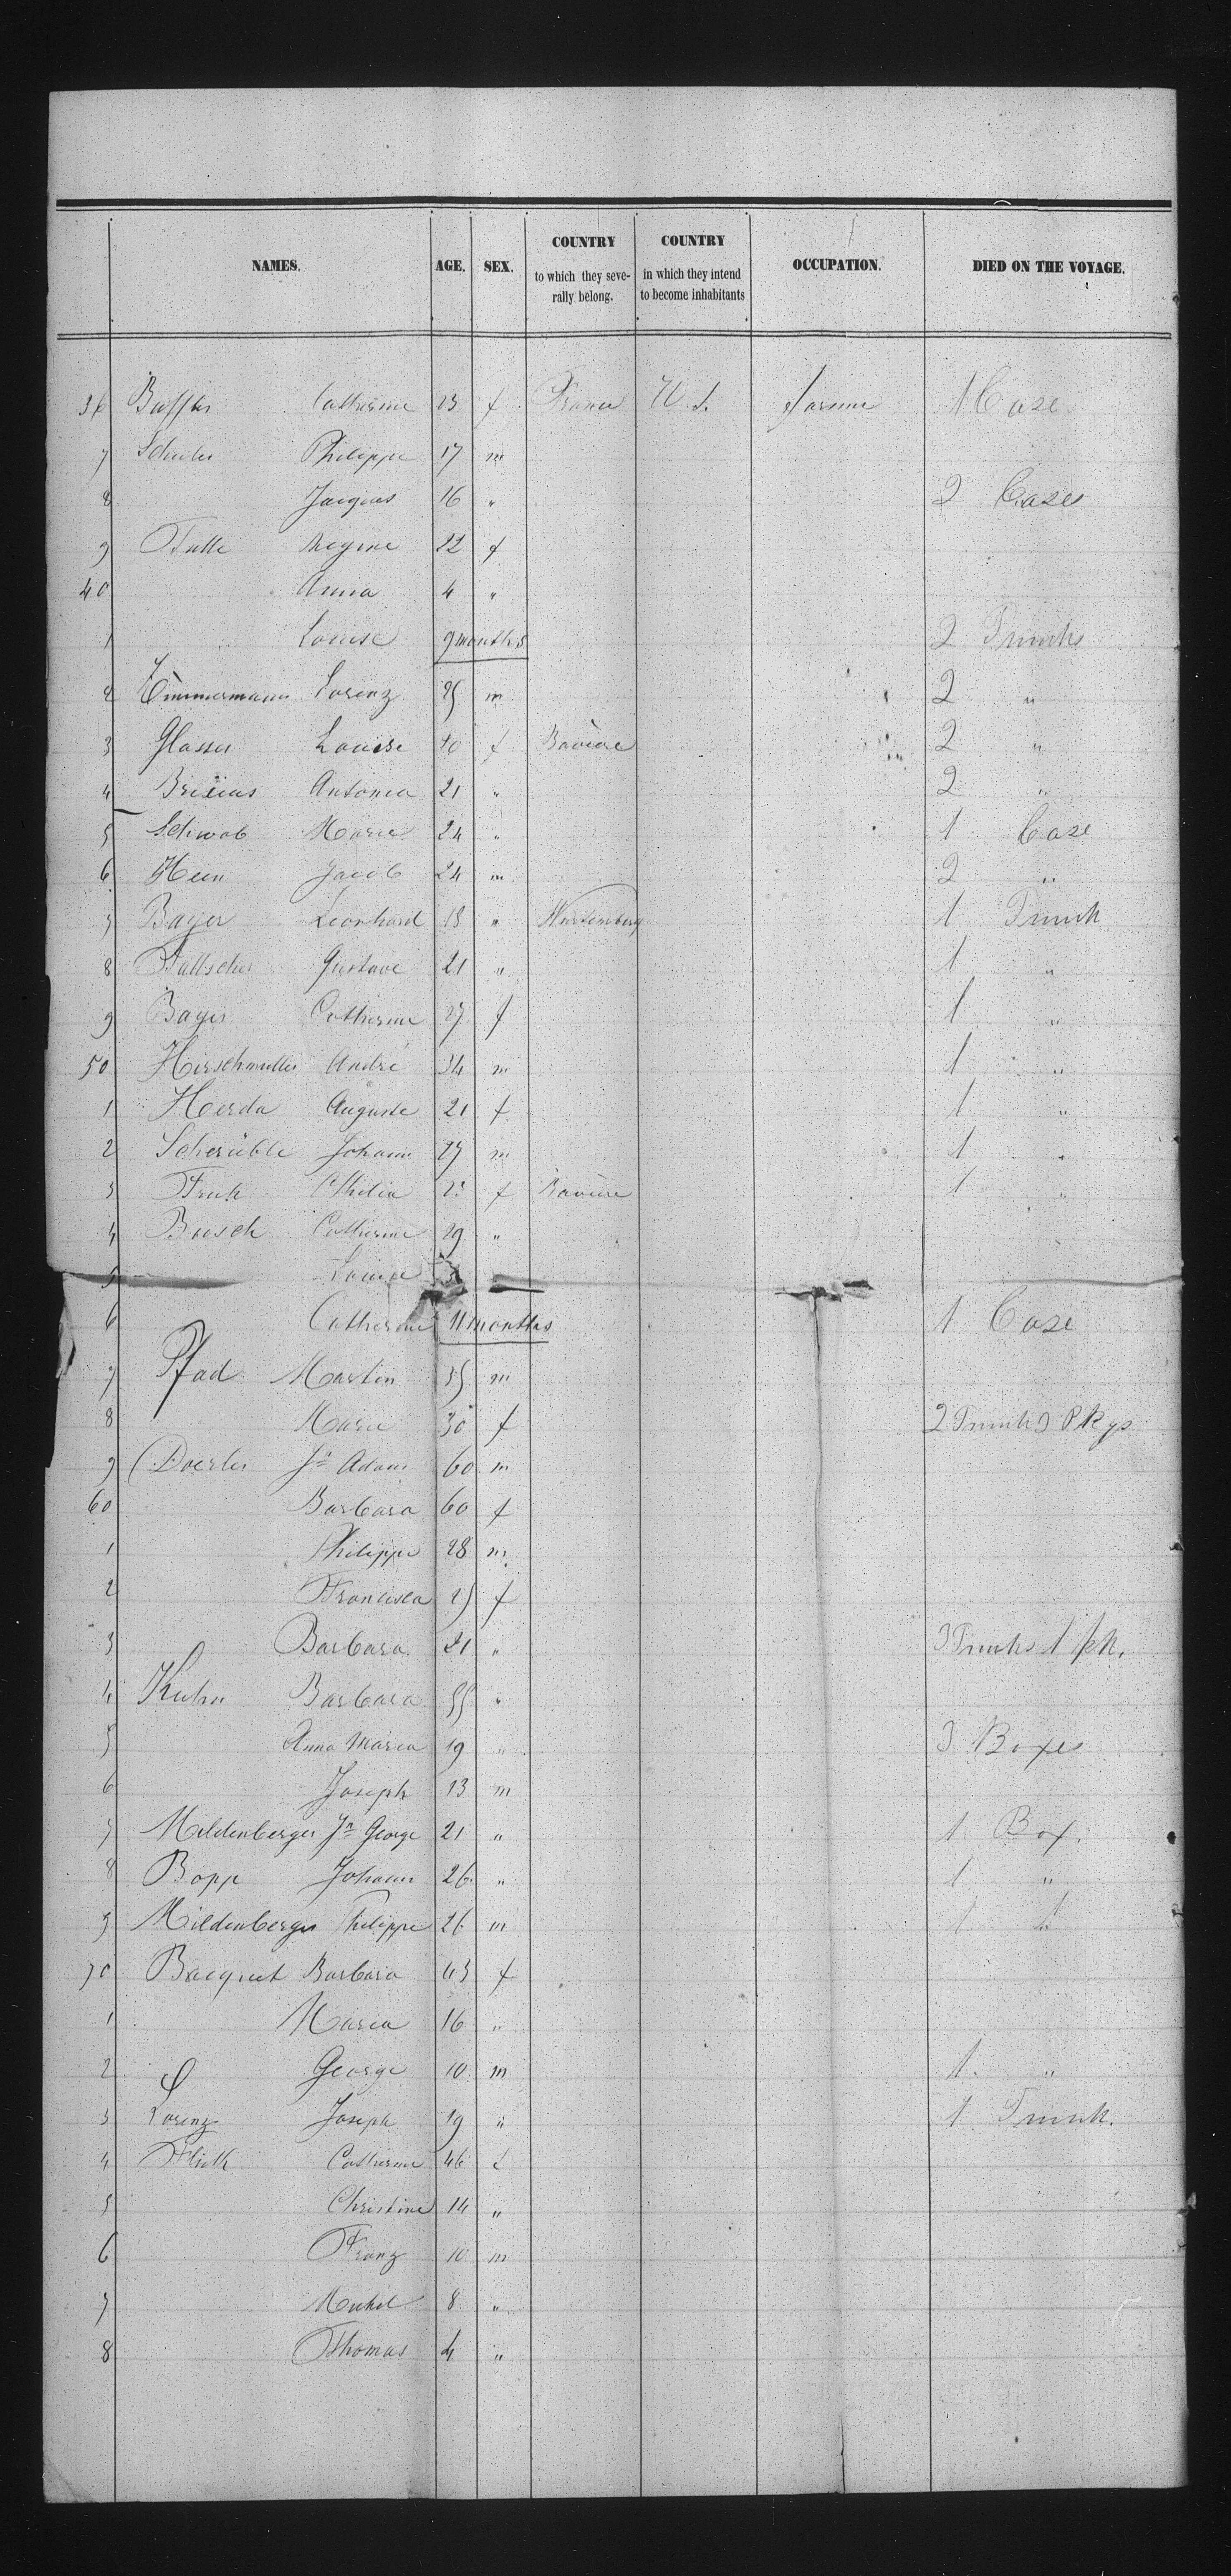 NAMES. AGE. SEX. COUNTRY to which they severally belong. COUNTRY in which they intend to become inhabitants OCCUPATION. DIED ON THE VOYAGE.
36 Catherine 23 f France U.S. farmer 1 Case
7 Philippe 17 m
8 Jacques 16 " 2 Cases
9 Regine 22 f
40 Anna 4 "
1 Louise 9 months 2 Trunks
2 Zimmermann Lorenz 25 m 2 "
3 Glasser Louise 40 f Bavière 2 "
4 Antonia 21 " 2 "
5 Schwab Marie 24 " 1 Case
6 Hein Jacob 24 m 2 "
7 Bayer Leonhard 18 " Wurtemberg 1 Trunk
8 Gustave 21 " 1 "
9 Bayer Catherine 27 f 1 "
50 Hirschmuller André 34 m 1 "
1 Herda Auguste 21 f 1 "
2 Scheruble Johann 27 m 1 "
3 Othilia 23 f Bavière 1 "
4 Baesch Catherine 29 "
5 Louise 3
6 Catherine 11 months 1 Case
7 Pfad Martin 35 m
8 Marie 30 f 2 Trunk 3 Pkgs
9 Doerler Jn Adam 60 m
60 Barbara 60 f
1 Philippe 28 m
2 Francisca 25 f
3 Barbara 21 " 3 Trunks 1 pk.
4 Kuhn Barbara 55 "
5 Anna Maria 19 " 3 Boxes
6 Joseph 13 m
7 Mildenberger Jn George 21 " 1 Box.
8 Bopp Johann 26 " 1 "
9 Mildenberger Philippe 26 m 1 "
70 Bacquet Barbara 43 f
1 Maria 16 "
2 George 10 m 1 "
3 Lorenz Joseph 19 " 1 Trunk.
4 Catherine 46 f
5 Christine 14 "
6 Franz 10 m
7 Michel 8 "
8 Thomas 4 "